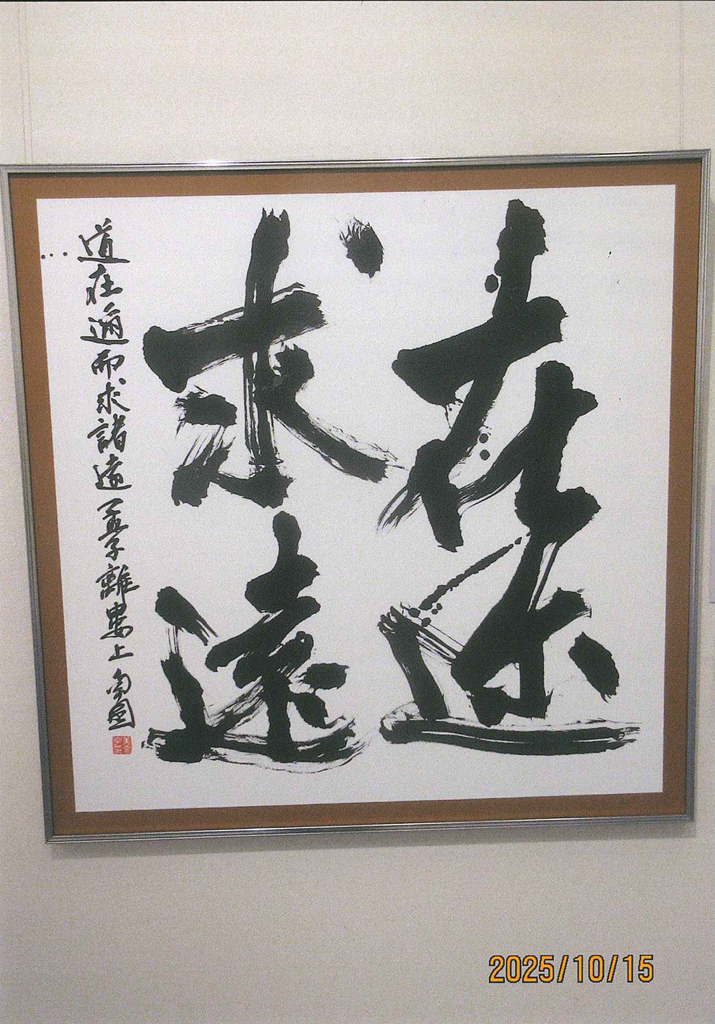 在迩
求遠
道在邇而求諸遠 孟子離婁上
2025/10/15